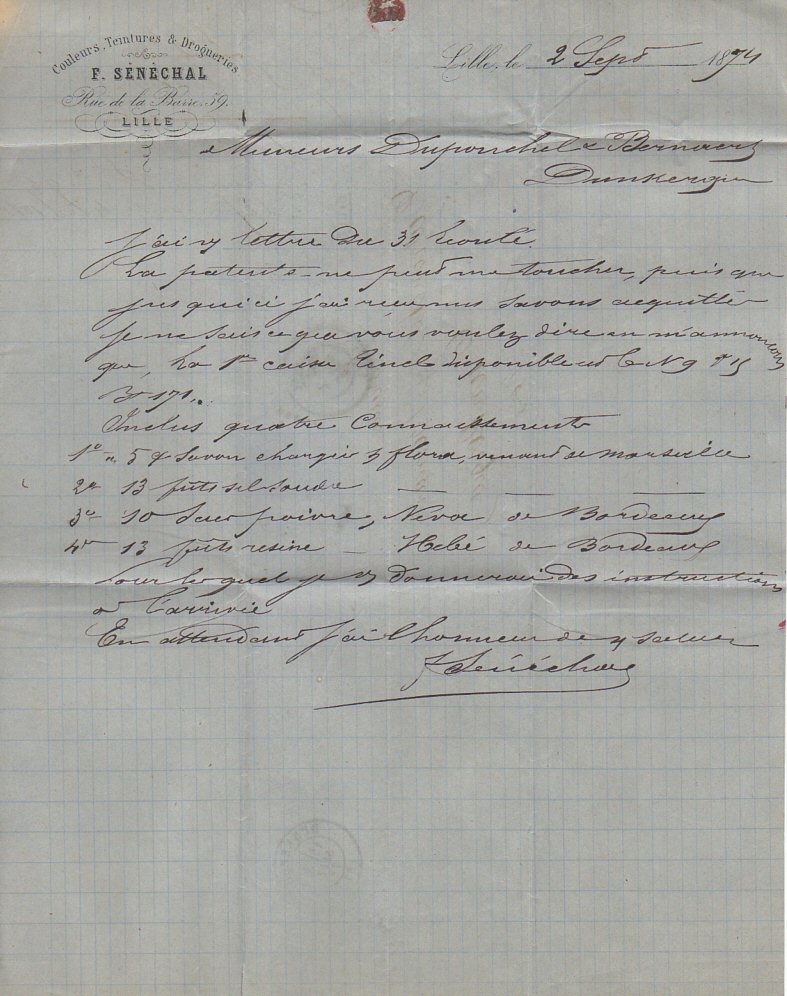 Couleurs, Teintures & Drogueries
F. SÉNÉCHAL
Rue de la Barre, 59.
LILLE
Lille, le 2 Sept 1874
Messieurs Duponchel & Bernaert
Dunkerque
J'ai v/ lettre du 31 écoulé.
La patente ne peut me toucher, puis que
jusqu'ici j'ai reçu mes savons acquittés
Je ne sais ce que vous voulez dire en m'annonçant
que, la 1re caisse disponible est le N 9
171.
Inclus quatre Connaissements
1° 5 savon chargés flora, venant de marseille
2° 13 futs sel soude — — —
3° 10 Sacs poivre, Neva de Bordeaux
4° 13 futs resine — Hebé de Bordeaux
Pour lequel je v/ donnerai des instructions
à l'arrivée
En attendant j'ai l'honneur de v/ saluer
F Sénéchal